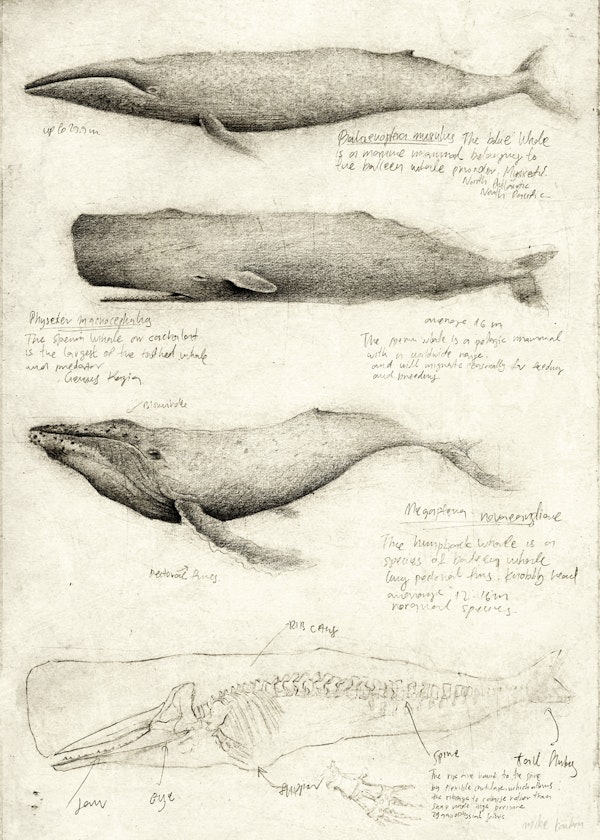 up to 29.9 m
Balaenoptera musculus The blue Whale
is a marine mammal belonging to
the baleen whale
North Atlantic
North Pacific
Physeter macrocephalus
The sperm whale or cachalot
is the largest of the toothed whale
and predator
Genus Kogia
average 16 m
The sperm whale is a pelagic mammal
with a worldwide range.
and will migrate seasonally for feeding
and breeding
Blowhole
Megaptera novaeangliae
The humpback whale is a
species of baleen whale
long pectoral fins. Knobbly head
average 12-16m
rorqual species.
pectoral fins
RIB CAGE
Spine
Jaw
Eye
flipper
tail
The ribs are bound to the spine
by flexible cartilage, which allows
the ribcage to collapse rather than
snap under high pressure
mike